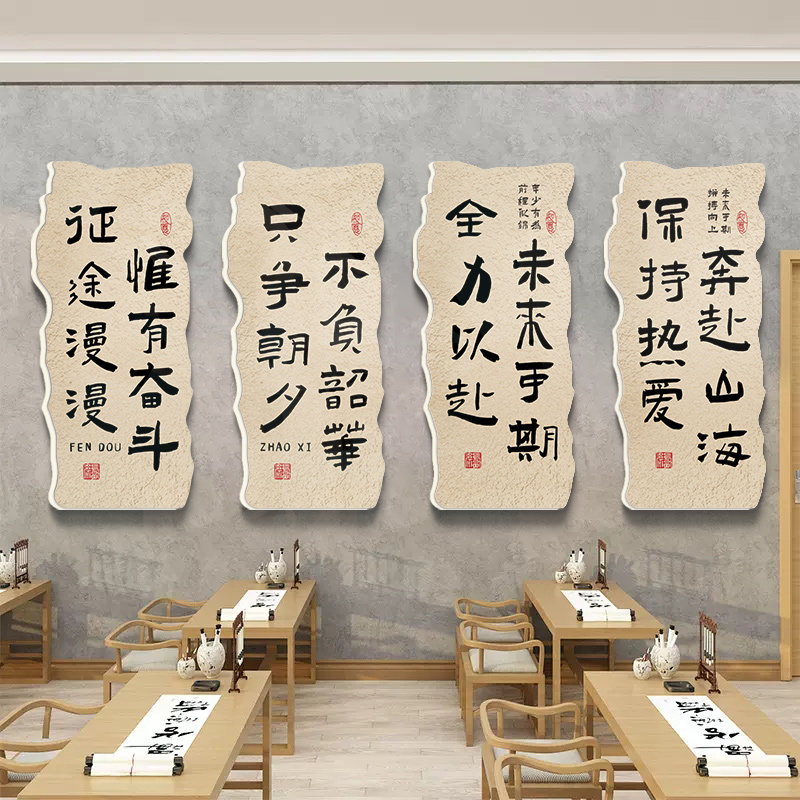 征途漫漫
惟有奋斗
FEN DOU
只争朝夕
不负韶華
ZHAO XI
年少有為
前程似錦
全力以赴
未来可期
未来可期
拼搏向上
保持热爱
奔赴山海